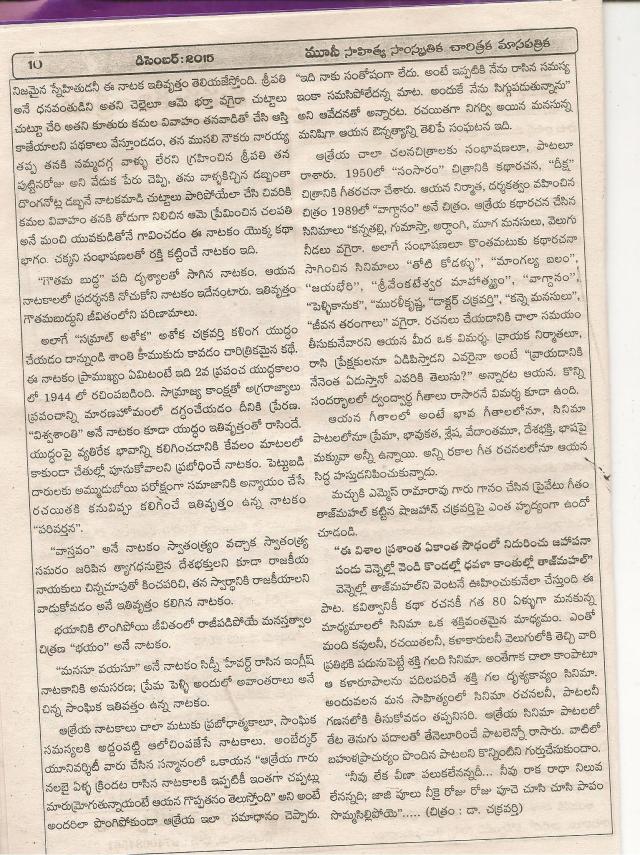 10
డిసెంబర్: 2015
మూసీ సాహిత్య సాంస్కృతిక చారిత్రక మాసపత్రిక
నిజమైన స్నేహితుడనీ ఈ నాటక ఇతివృత్తం తెలియజేస్తోంది. శ్రీపతి
అనే ధనవంతుడిని అతని చెల్లెలూ ఆమె భర్తా వగైరా చుట్టాలు
చుట్టూ చేరి అతని కూతురు కమల వివాహం తనవాడితో చేసి ఆస్తి
కాజేయాలని పథకాలు వేస్తూండడం, తన ముసలి నౌకరు నారయ్య
తప్ప తనకి నమ్మదగ్గ వాళ్ళు లేరని గ్రహించిన శ్రీపతి తన
పుట్టినరోజు అని వేడుక పేరు చెప్పి, తను వాళ్ళకిచ్చిన డబ్బంతా
దొంగనోట్ల డబ్బనే నాటకమాడి చుట్టాలు పారిపోయేలా చేసి చివరికి
కమల వివాహం తనకి తోడుగా నిలిచిన ఆమె ప్రేమించిన చలపతి
అనే మంచి యువకుడితోనే గావించడం ఈ నాటకం యొక్క కథా
భాగం. చక్కని సంభాషణలతో రక్తి కట్టించే నాటకం ఇది.
"గౌతమ బుద్ధ" పది దృశ్యాలతో సాగిన నాటకం. ఆయన
నాటకాలలో ప్రదర్శనకి నోచుకోని నాటకం ఇదేనంటారు. ఇతివృత్తం
గౌతమబుద్ధుని జీవితంలోని పరిణామాలు.
అలాగే "సమ్రాట్ అశోక" అశోక చక్రవర్తి కళింగ యుద్ధం
చేయడం దాన్నుండి శాంతి కాముకుడు కావడం చారిత్రకమైన కథే.
ఈ నాటకం ప్రాముఖ్యం ఏమిటంటే ఇది 2వ ప్రపంచ యుద్ధకాలం
లో 1944 లో రచింపబడింది. సామ్రాజ్య కాంక్షతో అగ్రరాజ్యాలు
ప్రపంచాన్ని మారణహోమంలో దగ్ధంచేయడం దీనికి ప్రేరణ.
"విశ్వశాంతి" అనే నాటకం కూడా యుద్ధం ఇతివృత్తంతో రాసిందే.
యుద్ధంపై వ్యతిరేక భావాన్ని కలిగించడానికి కేవలం మాటలలో
కాకుండా చేతుల్లో పూనుకోవాలని ప్రబోధించే నాటకం. పెట్టుబడి
దారులకు అమ్ముడుబోయి పరోక్షంగా సమాజానికి అన్యాయం చేసే
రచయితకి కనువిప్పు కలిగించే ఇతివృత్తం ఉన్న నాటకం
"పరివర్తన".
"వాస్తవం" అనే నాటకం స్వాతంత్ర్యం వచ్చాక స్వాతంత్ర్య
సమరం జరిపిన త్యాగధనులైన దేశభక్తులని కూడా రాజకీయ
నాయకులు చిన్నచూపుతో కించపరిచి, తన స్వార్థానికి రాజకీయాలని
వాడుకోవడం అనే ఇతివృత్తం కలిగిన నాటకం.
భయానికి లొంగిపోయి జీవితంలో రాజీపడిపోయే మనస్తత్వాల
చిత్రణ "భయం" అనే నాటకం.
"మనసూ వయసూ" అనే నాటకం సిడ్నీ హేవర్డ్ రాసిన ఇంగ్లీష్
నాటకానికి అనుసరణ; ప్రేమ పెళ్ళి అందులో అవాంతరాలు అనే
చిన్న సాంఘిక ఇతివృత్తం ఉన్న నాటకం.
ఆత్రేయ నాటకాలు చాలా మటుకు ప్రబోధాత్మకాలూ, సాంఘిక
సమస్యలకి అద్దంపట్టి ఆలోచింపజేసే నాటకాలు. అంబేద్కర్
యూనివర్శిటీ వారు చేసిన సన్మానంలో ఒకాయన "ఆత్రేయ గారు
నలభై ఏళ్ళ క్రిందట రాసిన నాటకాలకి ఇప్పటికీ ఇంతగా చప్పట్లు
మారుమ్రోగుతున్నాయంటే ఆయన గొప్పతనం తెలుస్తోంది" అని అంటే
అందరిలా పొంగిపోకుండా ఆత్రేయ ఇలా సమాధానం చెప్పారు.
"ఇది నాకు సంతోషంగా లేదు. అంటే ఇప్పటికి నేను రాసిన సమస్య
ఇంకా సమసిపోలేదన్న మాట. అందుకే నేను సిగ్గుపడుతున్నాను"
అని ఆవేదనతో అన్నారట. రచయితగా నిగర్వి అయిన మనసున్న
మనిషిగా ఆయన ఔన్నత్యాన్ని తెలిపే సంఘటన ఇది.
ఆత్రేయ చాలా చలనచిత్రాలకు సంభాషణలూ, పాటలూ
రాశారు. 1950లో "సంసారం" చిత్రానికి కథారచన, "దీక్ష"
చిత్రానికి గీతరచనా చేశారు. ఆయన నిర్మాత, దర్శకత్వం వహించిన
చిత్రం 1989లో "వాగ్దానం" అనే చిత్రం. ఆత్రేయ కథారచన చేసిన
సినిమాలు "కన్నతల్లి, గుమాస్తా, అర్ధాంగి, మూగ మనసులు, వెలుగు
నీడలు వగైరా. అలాగే సంభాషణలూ కొంతమటుకు కథారచనా
సాగించిన సినిమాలు "తోటి కోడళ్ళు", "మాంగల్య బలం",
"జయభేరి", "శ్రీవేంకటేశ్వర మాహాత్మ్యం", "వాగ్దానం",
"పెళ్ళికానుక", "మురళీకృష్ణ, "డాక్టర్ చక్రవర్తి", "కన్నె మనసులు",
"జీవన తరంగాలు" వగైరా. రచనలు చేయడానికి చాలా సమయం
తీసుకునేవారని ఆయన మీద ఒక విమర్శ. వ్రాయక నిర్మాతలూ,
రాసి ప్రేక్షకులనూ ఏడిపిస్తాడని ఎవరైనా అంటే "వ్రాయడానికి
నేనెంత ఏడుస్తానో ఎవరికి తెలుసు?" అన్నారట ఆయన. కొన్ని
సందర్భాలలో ద్వంద్వార్థ గీతాలు రాసారనే విమర్శ కూడా ఉంది.
ఆయన గీతాలలో అంటే భావ గీతాలలోనూ, సినిమా
పాటలలోనూ ప్రేమా, భావుకత, శ్లేష, వేదాంతమూ, దేశభక్తి, భాషపై
మక్కువా అన్నీ ఉన్నాయి. అన్ని రకాల గీత రచనలలోనూ ఆయన
సిద్ధ హస్తుడనిపించుకున్నాడు.
మచ్చుకి ఎమ్మెస్ రామారావు గారు గానం చేసిన ప్రైవేటు గీతం
తాజ్‌మహల్ కట్టిన షాజహాన్ చక్రవర్తిపై ఎంత హృద్యంగా ఉందో
చూడండి.
"ఈ విశాల ప్రశాంత ఏకాంత సౌధంలో నిదురించు జహాపనా
పండు వెన్నెల్లో వెండి కొండల్లే ధవళా కాంతుల్లో తాజ్‌మహల్"
వెన్నెల్లో తాజ్‌మహల్‌ని వెంటనే ఊహించుకునేలా చేస్తుంది ఈ
పాట. కవిత్వానికీ కథా రచనకీ గత 80 ఏళ్ళుగా మనకున్న
మాధ్యమాలలో సినిమా ఒక శక్తివంతమైన మాధ్యమం. ఎంతో
మంది కవులనీ, రచయితలనీ, కళాకారులనీ వెలుగులోకి తెచ్చి వారి
ప్రతిభకి పదునుపెట్టే శక్తి గలది సినిమా. అంతేగాక చాలా కాంపాటూ
ఆ కళారూపాలను పదిలపరిచే శక్తి గల దృశ్యకావ్యం సినిమా.
అందువలన మన సాహిత్యంలో సినిమా రచనలనీ, పాటలనీ
గణనలోకి తీసుకోవడం తప్పనిసరి. ఆత్రేయ సినిమా పాటలలో
తేట తెనుగు పదాలతో తేనెలూరించే పాటలెన్నో రాసారు. వాటిలో
బహుళప్రాచుర్యం పొందిన పాటలని కొన్నింటిని గుర్తుచేసుకుందాం.
"నీవు లేక వీణా పలుకలేనన్నదీ... నీవు రాక రాధా నిలువ
లేనన్నది; జాజి పూలు నీకై రోజు రోజు పూచె చూసి చూసి పాపం
సొమ్మసిల్లిపోయె"..... (చిత్రం : డా. చక్రవర్తి)